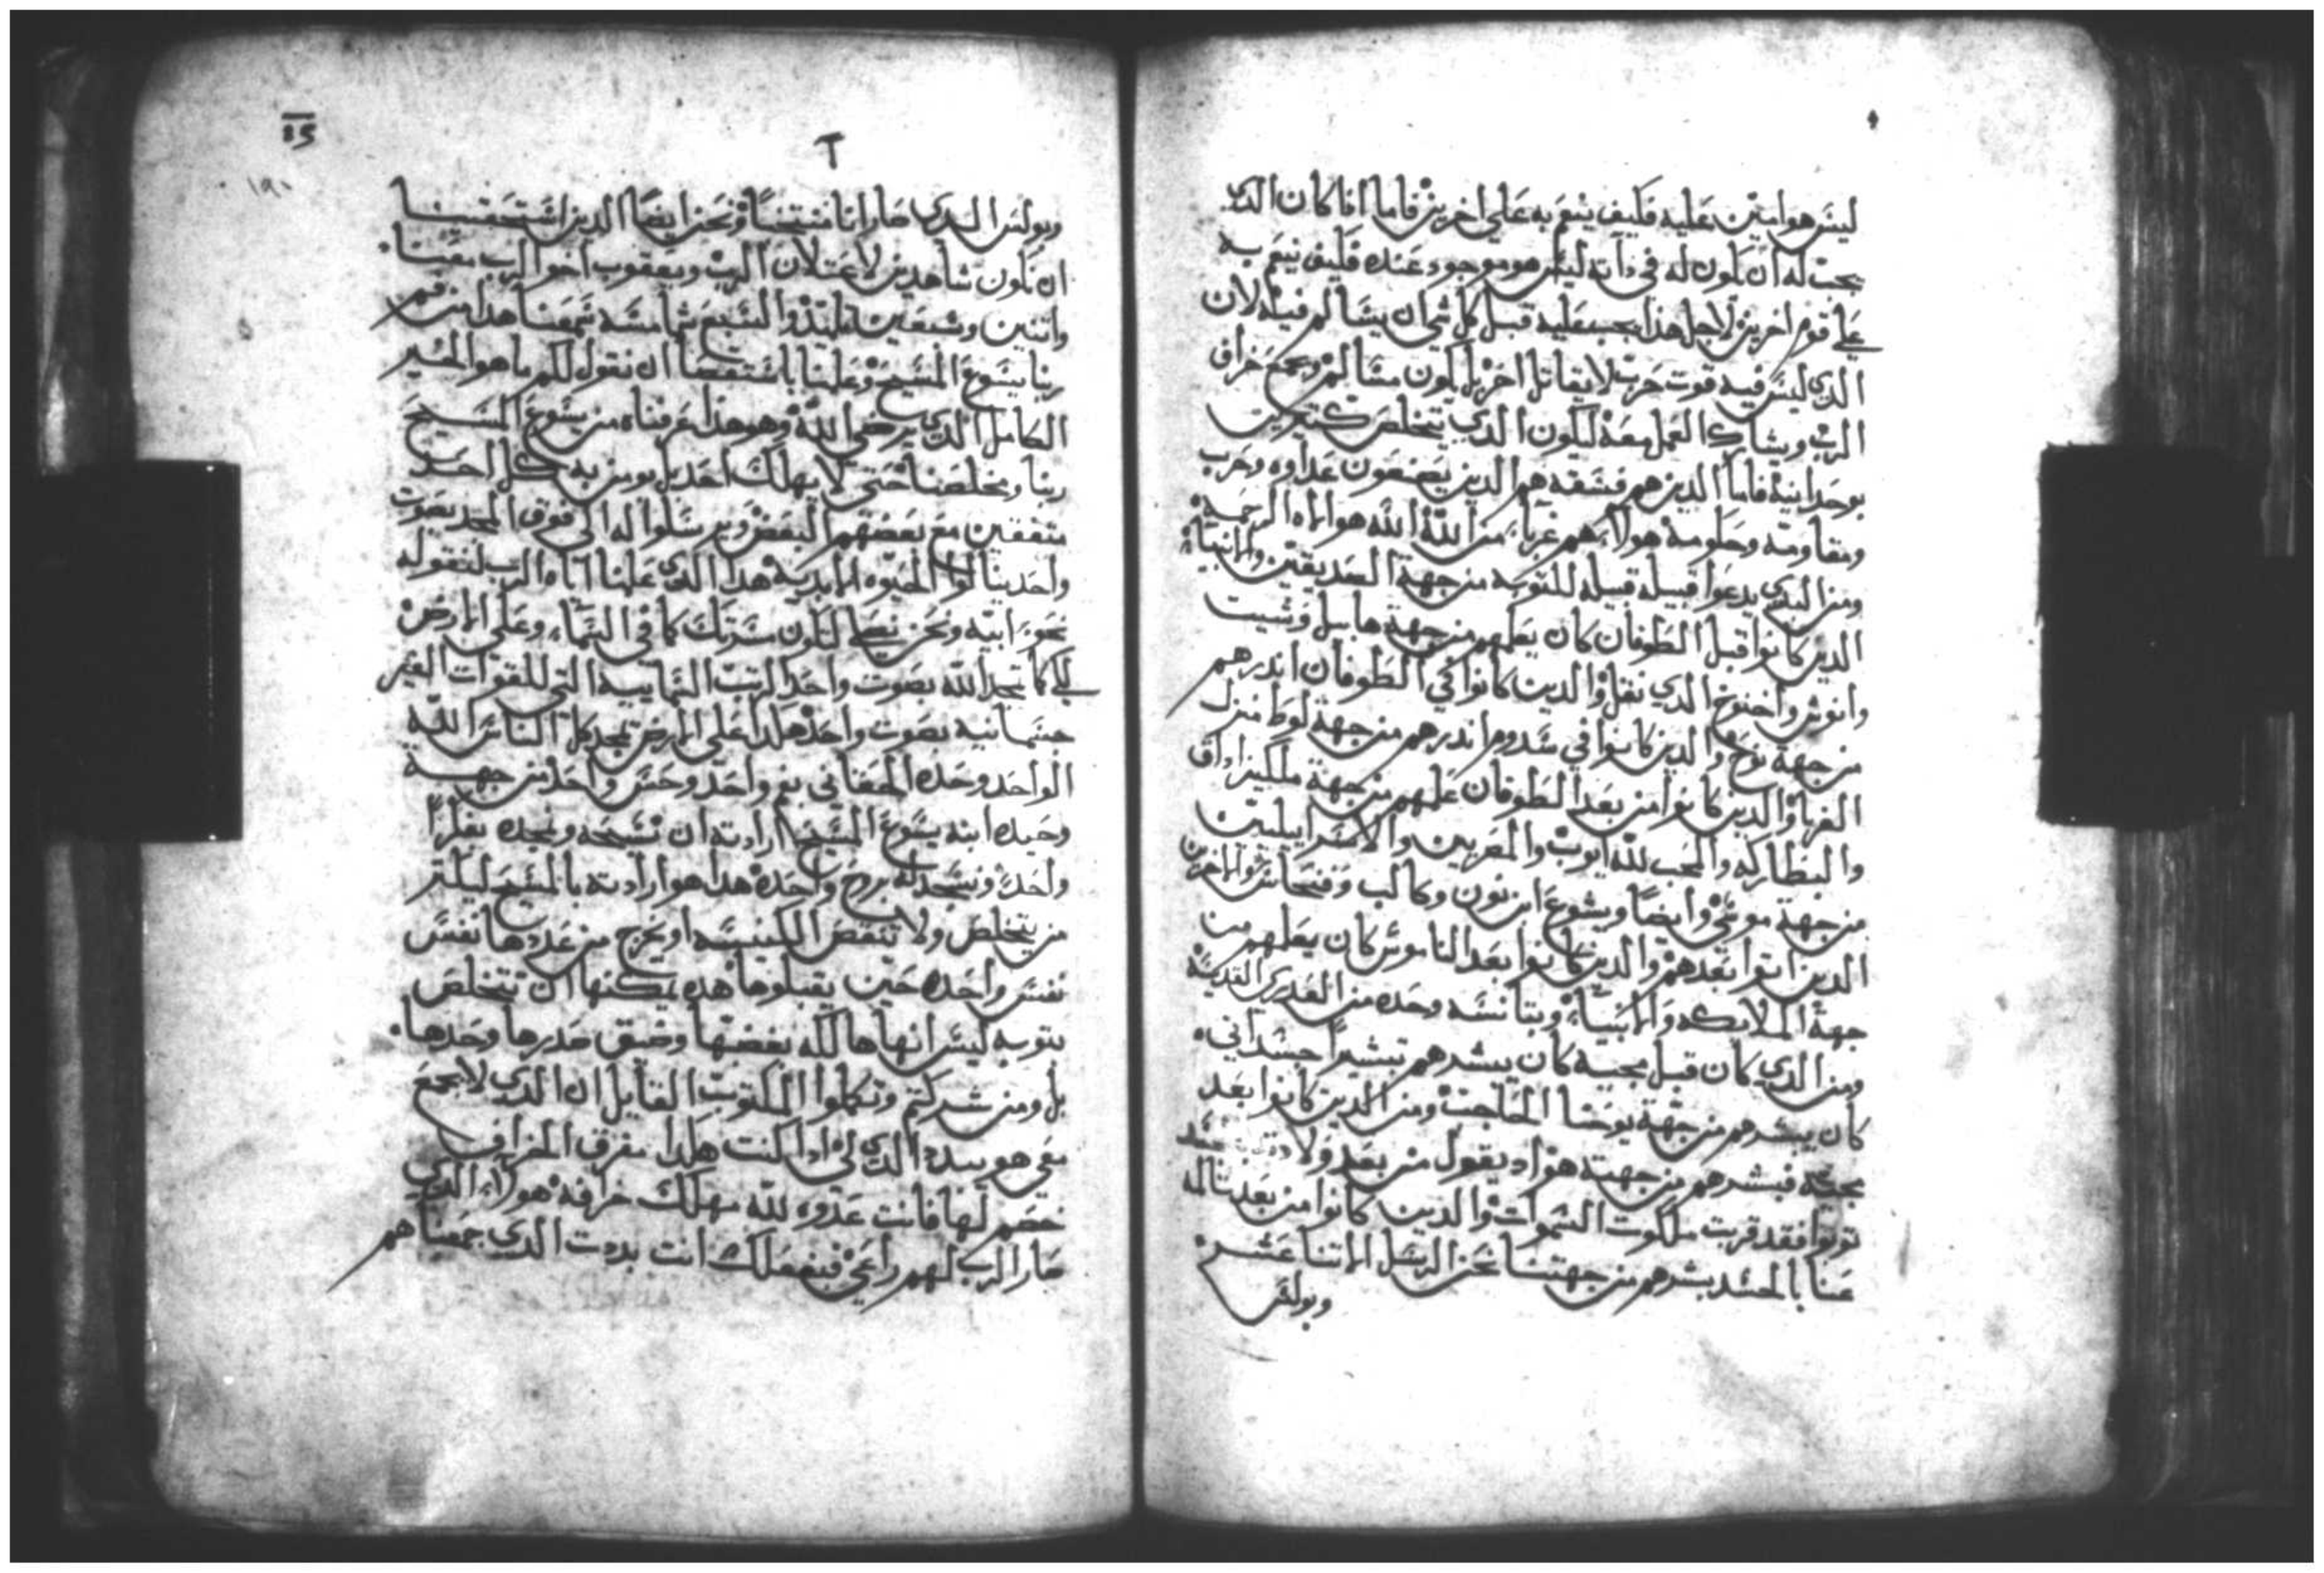 ليس هو امين عليه فكيف ينعم به علي اخرين فاما اذا كان الذي
يجب له ان يكون له في داته ليس هو موجود عنده فكيف ينعم به
علي قوم اخرين لاجل هذا يجب عليه قبل كل شي ان يسالم فيله لان
الذي ليس فيه قوت حرب لا يقاتل احد بل يكون مسالم ويجمع خراف
الرب ويشارك العمل معه ليكون الذي يتخلص كتيرين
بوحدانية فاما الدين هم فسقه هم الدين يصنعون عداوه وحرب
ومقاومة وحكومة هولاء هم غرباء من الله الله هو اله الرحمة
ومن البدي يدعوا قبيله قبيله للتوبه من جهة الصديقين والانبياء
الدين كانوا قبل الطوفان كان يعلمهم من جهة هابيل وشيت
وانوش واخنوخ الدي نقل والدين كانوا في الطوفان اندرهم
من جهة نوح والدين كانوا في سدوم اندرهم من جهة لوط منزل
الغربا والدين كانوا من بعد الطوفان علمهم من جهة ملكيزاداق
والبطاركه والمحب لله ايوب والمصريين والاسراييليين
من جهة موسي وايضا ويشوع ابن نون وكالب وفنحاس والاخرين
الدين اتوا بعدهم والدين كانوا بعد الناموس كان يعلمهم من
جهة الملايكه والانبياء وبتانسه وحده من العدري القديسه
ومن الدي كان قبل مجييه كان يبشرهم تبشيرا جسداني
كان يبشرهم من جهة يوحنا الحاجب ومن الدين كانوا بعد
مجييه فبشرهم من جهته هو اد يقول من بعد ولادته
توبوا فقد قربت ملكوت السموات والدين كانوا من بعد تالمه
عنا بالجسد بشرهم من جهتنا نحن الرسل الاتنا عشر
وبولس
15
T
١٩٠
وبولس الدي صار انا منتخبا ونحن ايضا الدين استحقينا
ان نكون شاهدين لاعتلان الرب ويعقوب اخو الرب معنا
واتنين وسبعين تلميذ والسبع شمامسه سمعنا هدا من فم
ربنا يسوع المسيح وعلمنا باستقصا ان نقول لكم ما هو الخير
الكامل الدي يرضي الله وهو هدا عرفناه من يسوع المسيح
ربنا ومخلصنا حتي لا يهلك احد بل يومن به كل احد
متفقين مع بعضهم البعض ويرسلوا له الي فوق المجد بصوت
واحد ينالوا الحيوه الابديه هدا الدي علمنا اياه الرب لنقوله
نحو ابيه ونحن نصلي لتكون مسرتك كما في السماء وعلي الارض
لكي كما تمجد الله بصوت واحد الرتب السماييه التي للقوات الغير
جسمانيه بصوت واحد هكدا علي الارض تمجد كل الناس الله
الواحد وحده الحقاني بفم واحد وحس واحد من جهة
وحيده ابنه يسوع المسيح ارادته ان نسبحه ونمجده بفكرا
واحد ونسجد له بروح واحده هدا هو ارادته بالمسيح ليكتر
من يتخلص ولا ينقص الكنيسه او يخرج من عددها نفس
نفس واحده حين يقبلوها هده يمكنها ان تتخلص
بتوبه ليس انها هالكه بغضبها وضيق صدرها وحدها
بل ومن شركتم وتكملوا المكتوب القايل ان الدي لا يجمع
معي هو يبدد الدي لي ادا كنت هكدا مفرق الخراف
خصم لها فانت عدوه لله مهلك خرافه هولاء الدي
صار الرب لهم راعي فبفعلك انت بددت الدي جمعنا هم